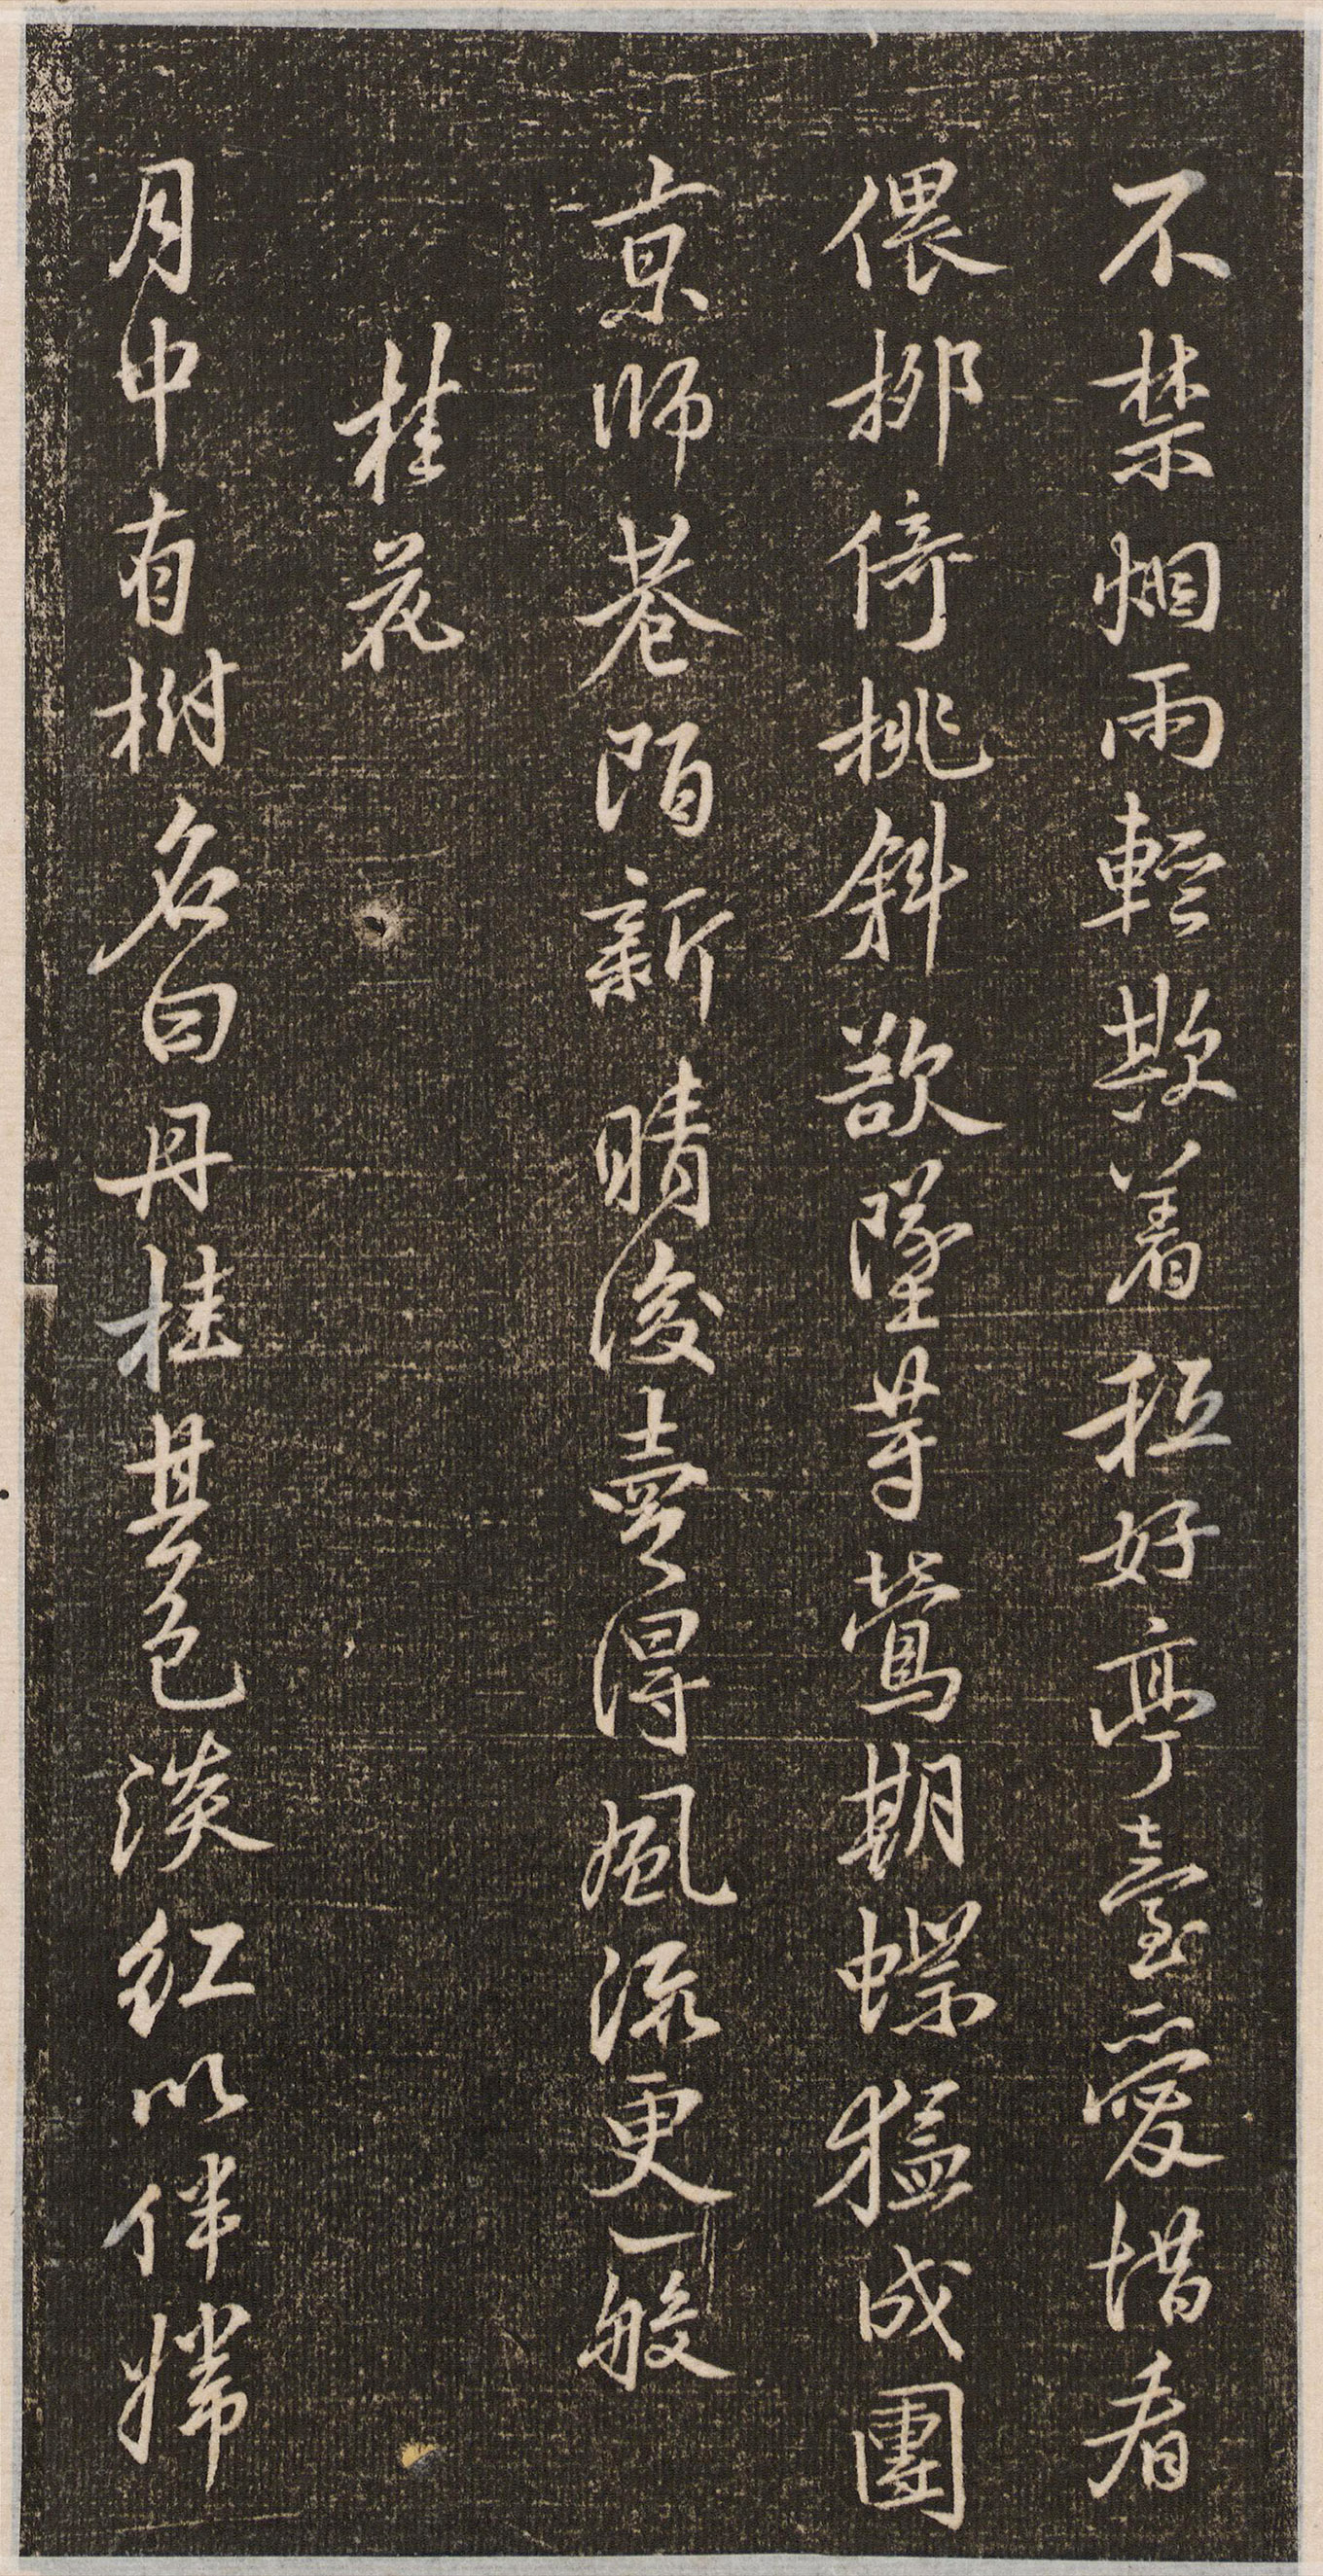 不禁烟雨輕欺著秪好亭臺愛惜看
偎柳倚桃斜欲墜等鶯期蝶猛成團
京師巷陌新晴後賣得風流更一般
桂花
月中有樹名曰丹桂其色淡紅以伴嫦